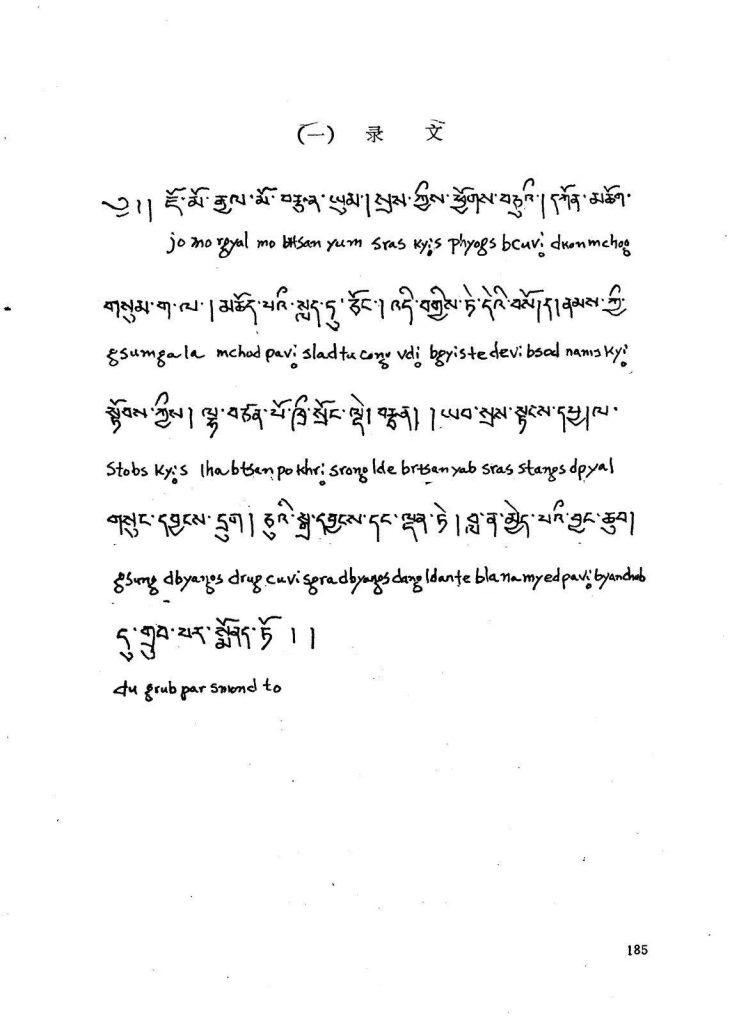 (一) 录 文
༄།། ཇོ་མོ་རྒྱལ་མོ་བརྩན་ཡུམ། སྲས་ཀྱིས་ཕྱོགས་བཅུའི། དཀོན་མཆོག་
jo mo rgyal mo btsan yum sras kyis phyogs bcuvi dkon mchog
གསུམ་ག་ལ། མཆོད་པའི་སླད་དུ་ཅོང་། འདི་བགྱིས་ཏེ་དེའི་བསོད་ནམས་ཀྱི་
gsum ga la mchod pavi slad tu cong vdi bgyis te devi bsod nams kyi
སྟོབས་ཀྱིས། ལྷ་བཙན་པོ་ཁྲི་སྲོང་ལྡེ། བརྩན། ། ཡབ་སྲས་སྟངས་དཔྱལ་
stobs kyis lha btsan po khri srong lde brtsan yab sras stangs dpyal
གསུང་དབྱངས་དྲུག། ཅུའི་སྒྲ་དབྱངས་དང་ལྡན་ཏེ། བླ་ན་མྱེད་པའི་བྱང་ཆུབ།
gsung dbyangs drug cuvi sgra dbyangs dang ldan te bla na myed pavi byanchub
དུ་གྲུབ་པར་སྨོནད་ཏོ ། །
du grub par smond to
185